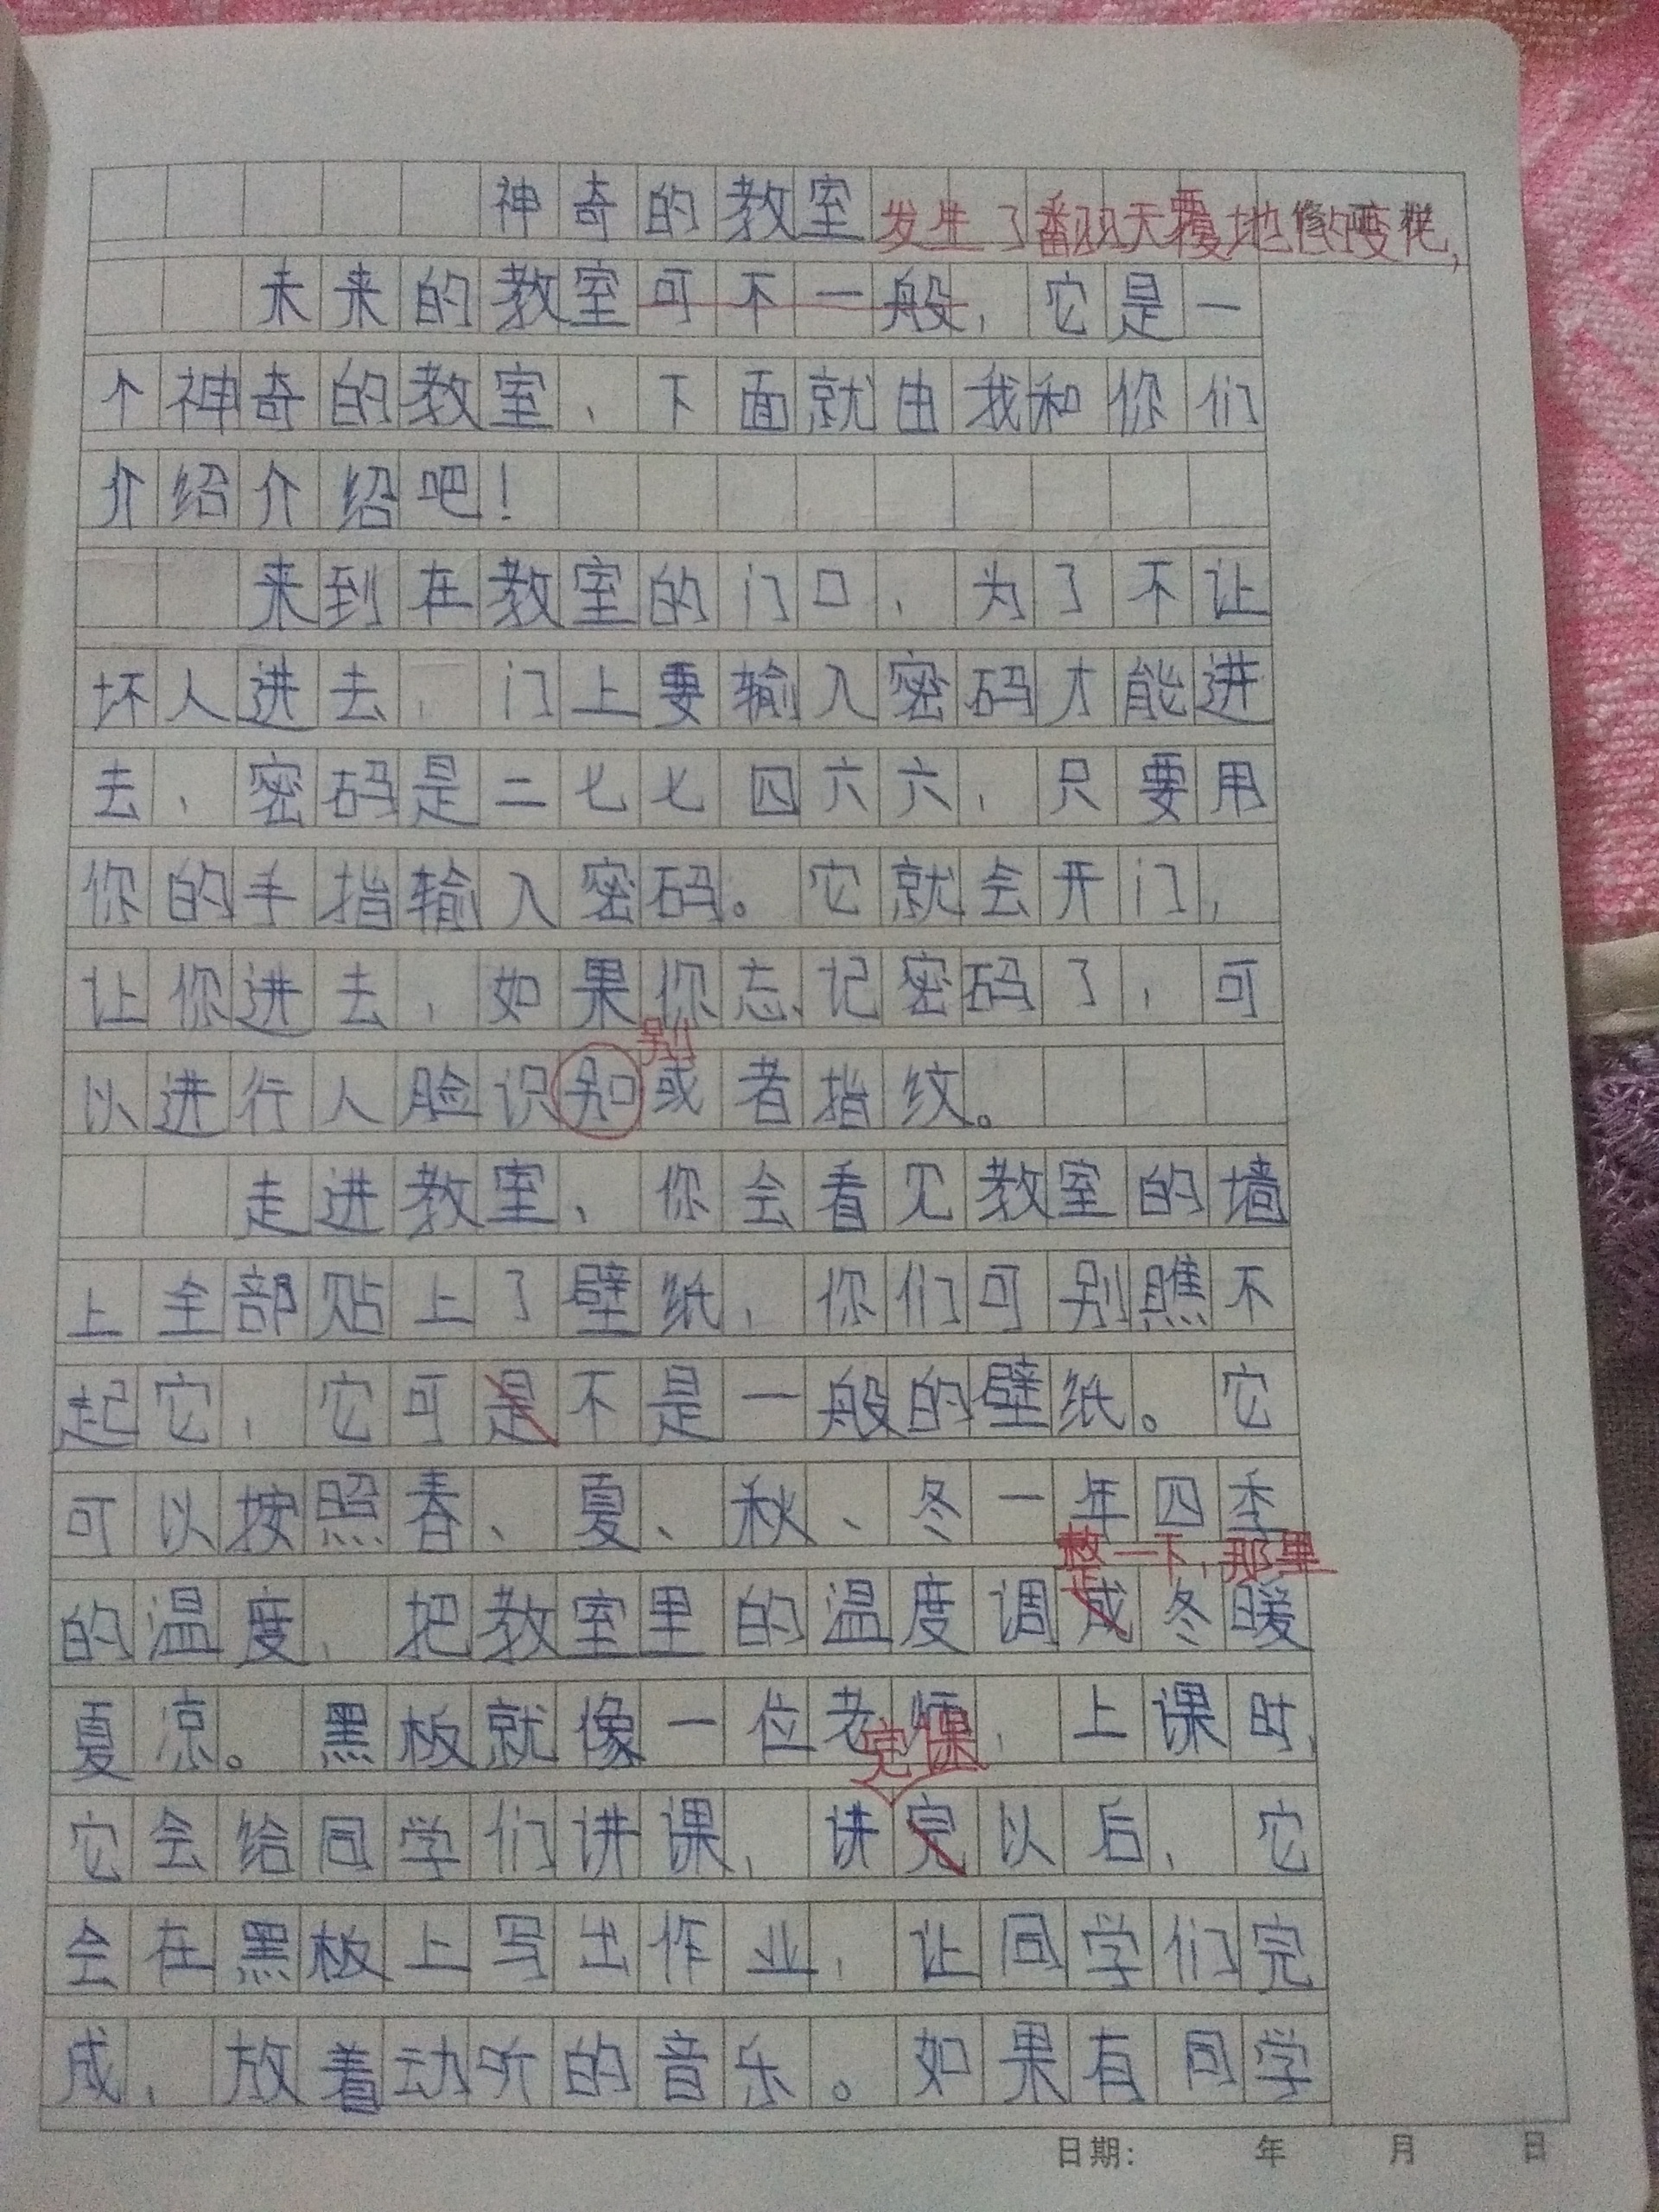 神奇的教室 发生了翻天覆地的变化，
未来的教室可不一般，它是一
个神奇的教室，下面就由我和你们
介绍介绍吧！
来到在教室的门口，为了不让
坏人进去，门上要输入密码才能进
去，密码是二七七四六六，只要用
你的手指输入密码。它就会开门，
让你进去，如果你忘记密码了，可
别
以进行人脸识别或者指纹。
走进教室，你会看见教室的墙
上全部贴上了壁纸，你们可别瞧不
起它，它可是不是一般的壁纸。它
可以按照春、夏、秋、冬一年四季
整一下，那里
的温度，把教室里的温度调成冬暖
夏凉。黑板就像一位老师，上课时，
完课
它会给同学们讲课，讲完以后，它
会在黑板上写出作业，让同学们完
成，放着动听的音乐。如果有同学
日期： 年 月 日